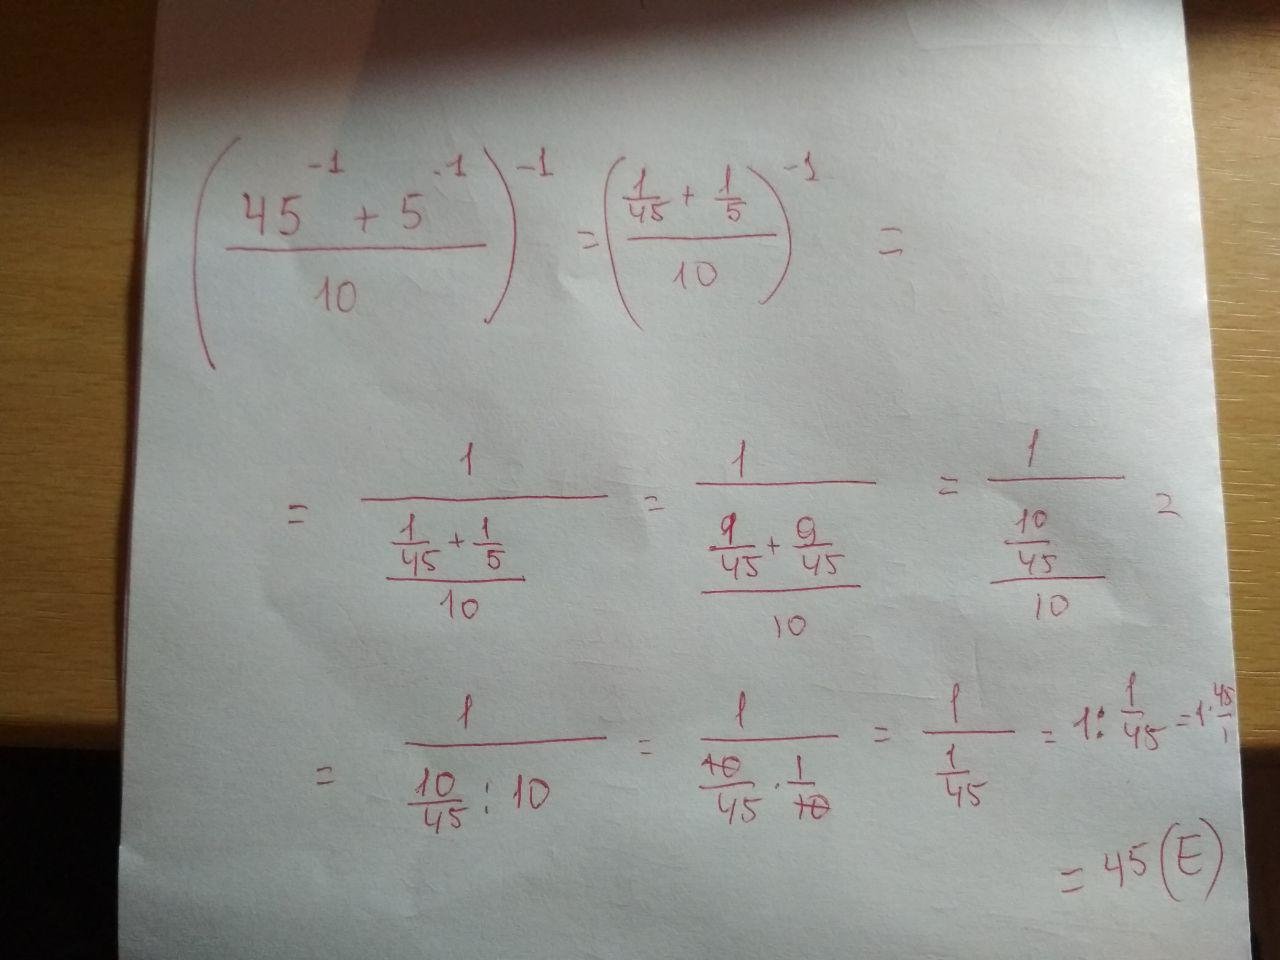 (45⁻¹ + 5⁻¹ / 10)⁻¹ = (1/45 + 1/5 / 10)⁻¹ =
= 1 / ((1/45 + 1/5) / 10) = 1 / ((9/45 + 9/45) / 10) = 1 / ((10/45) / 10) =
= 1 / (10/45 : 10) = 1 / (10/45 · 1/10) = 1 / (1/45) = 1 : 1/45 = 1 · 45/1
= 45 (E)